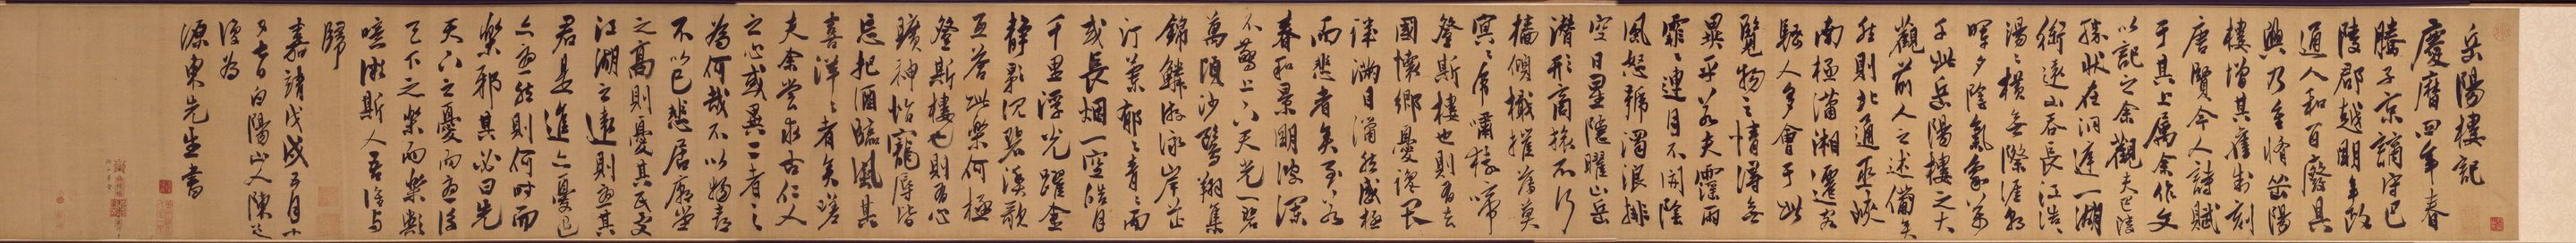 岳陽樓記
慶曆四年春
滕子京謫守巴
陵郡越明年政
通人和百廢具
興乃重脩岳陽
樓增其舊制刻
唐賢今人詩賦
于其上屬余作文
以記之余觀夫巴陵
勝狀在洞庭一湖
銜遠山吞長江浩浩
湯湯橫無際涯朝
暉夕陰氣象萬
千此岳陽樓之大
觀前人之述備矣
然則北通巫峽
南極瀟湘遷客
騷人多會于此
覽物之情得無
異乎若夫霪雨
霏霏連月不開陰
風怒號濁浪排
空日星隱曜山岳
潛形商旅不行
檣傾檝摧薄莫
冥冥虎嘯猿啼
登斯樓也則有去
國懷鄉憂讒畏
譏滿目蕭然感極
而悲者矣至若
春和景明波瀾
不驚上下天光一碧
萬頃沙鷗翔集
錦鱗游泳岸芷
汀蘭郁郁青青而
或長烟一空皓月
千里浮光躍金
靜影沉碧漁歌
互答此樂何極
登斯樓也則有心
曠神怡寵辱皆
忘把酒臨風其
喜洋洋者矣嗟
夫余嘗求古仁人
之心或異二者之
為何哉不以物喜
不以己悲居廟堂
之高則憂其民處
江湖之遠則憂其
君是進亦憂退
亦憂然則何時而
樂邪其必曰先
天下之憂而憂後
天下之樂而樂歟
噫微斯人吾誰與
歸
嘉靖戊戌五月十
又七日白陽山人陳道
復為
源東先生書